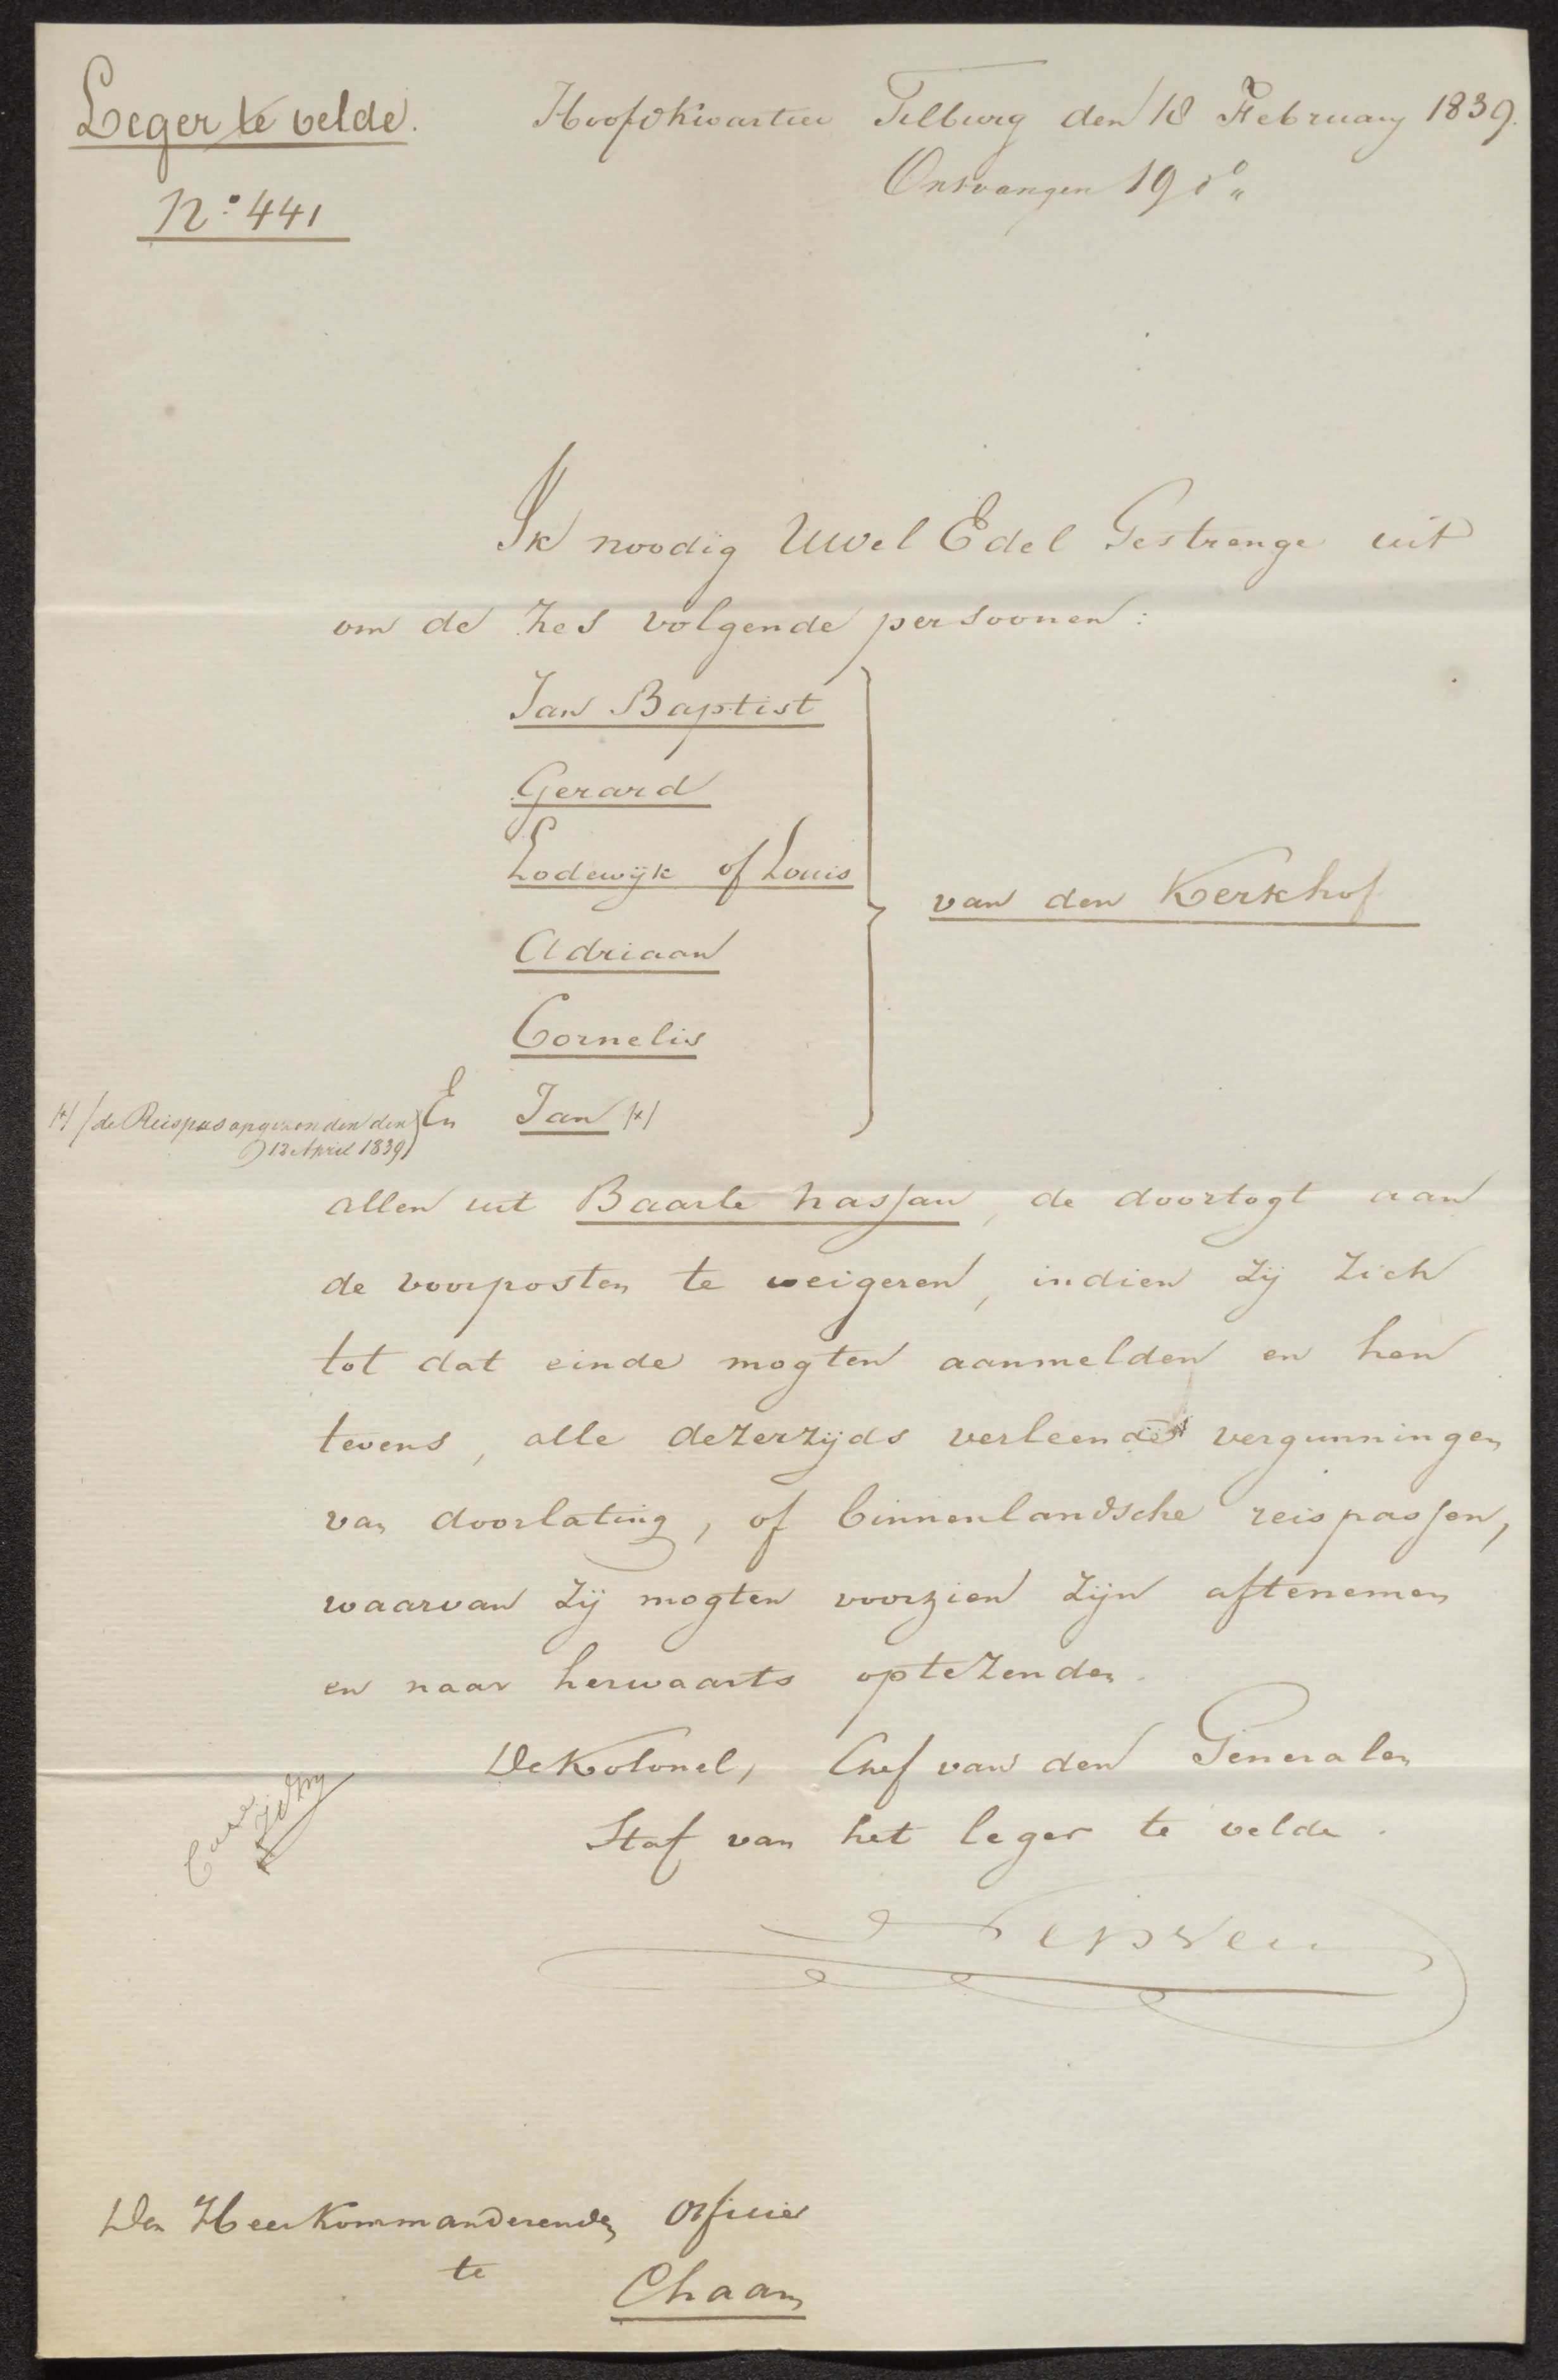 Leger te velde.
N:o 441
Hoofdkwartier Tilburg den 18 February 1839.
Ontvangen 19 do "
Ik noodig UWel Edel Gestrenge uit
om de zes volgende persoonen:
Jan Baptist
Gerard
Lodewijk of Louis
Adriaan
Cornelis
En Jan /+/
van den Kerkhof
/+/ /de Reispas opgezonden den
12 April 1839/
allen uit Baarle Nassau, de doortogt aan
de voorposten te weigeren, indien zij zich
tot dat einde mogten aanmelden en hen
tevens, alle dezerzijds verleende vergunningen
van doorlating, of binnenlandsche reispassen,
waarvan zij mogten voorzien zijn aftenemen
en naar herwaarts optezenden.
De Kolonel, Chef van den Generalen
Staf van het leger te velde.
Nepveu
Den Heer Kommanderenden Officier
te
Chaam